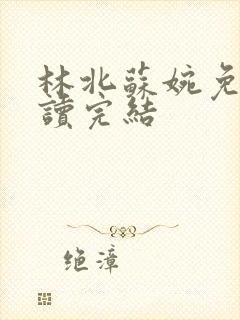 林北蘇婉免
讀完結
绝漳